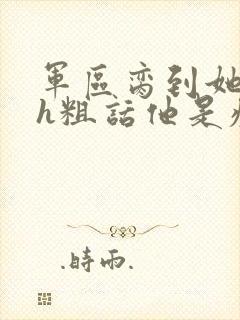 軍區脔到她
h粗話他是
.時雨.